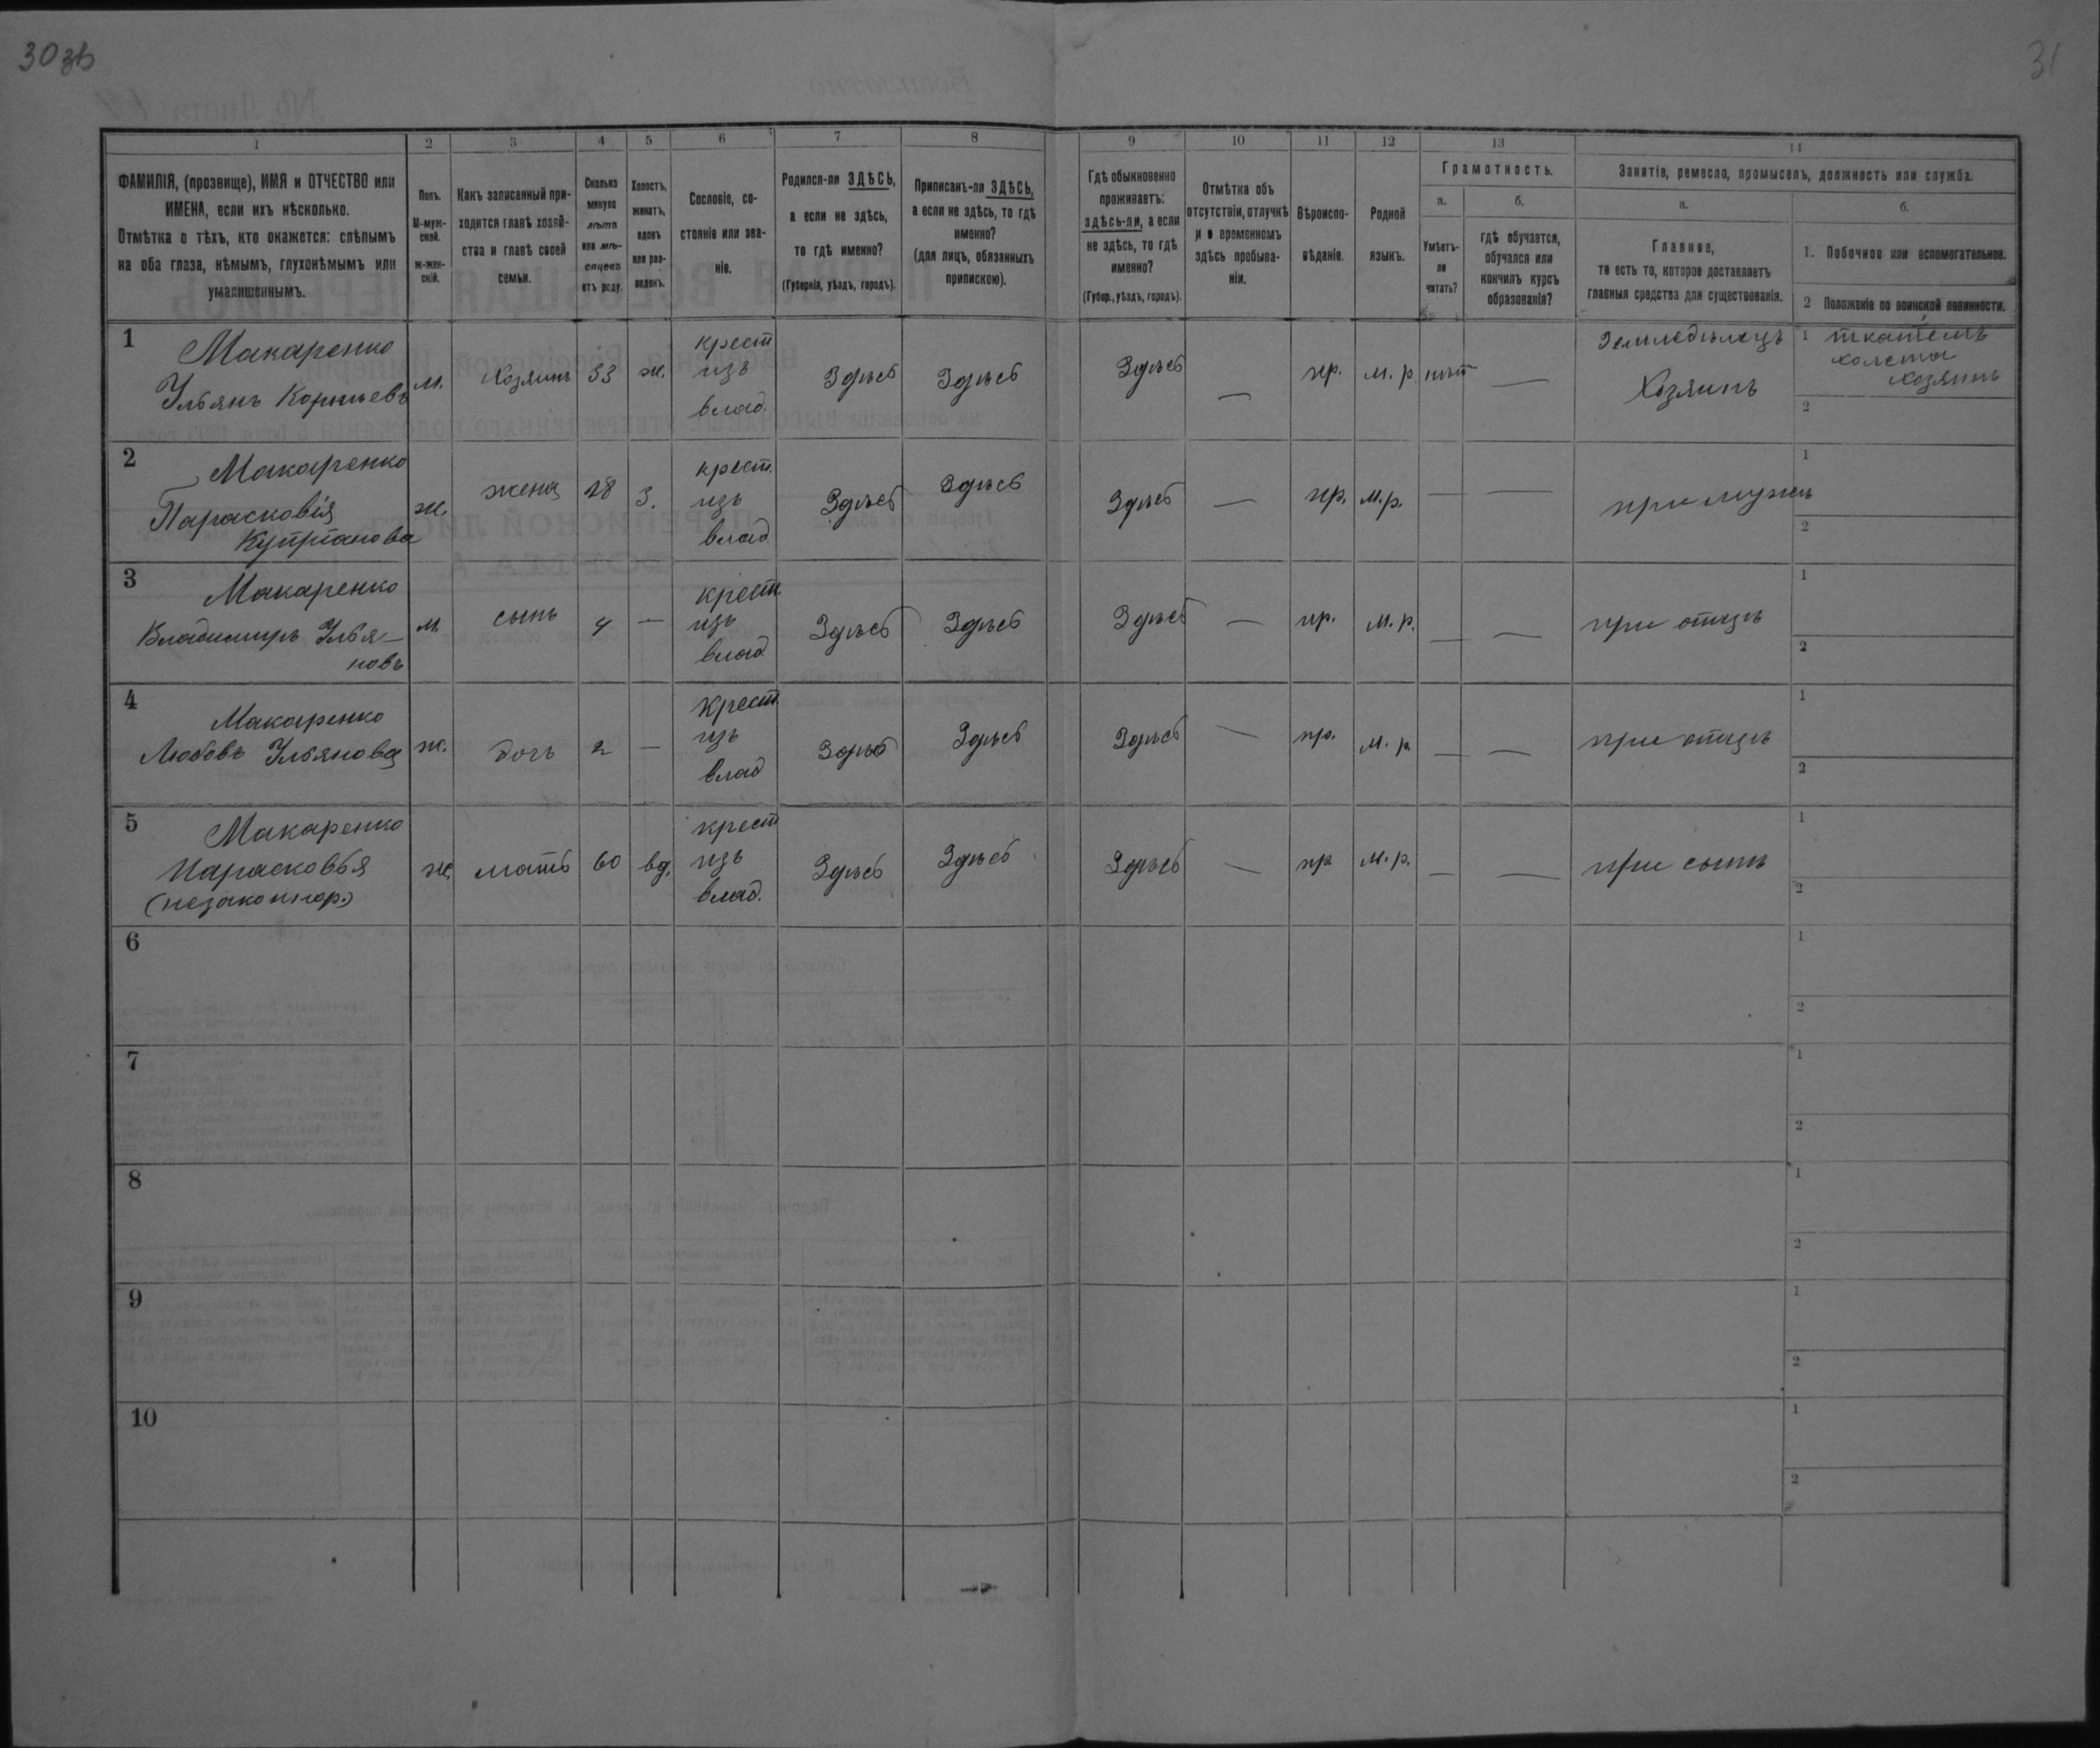 30 зв
31
1 2 3 4 5 6 7 8 9 10 11 12 13 14
ФАМИЛІЯ, (прозвище), ИМЯ и ОТЧЕСТВО или ИМЕНА, если ихъ нѣсколько.
Отмѣтка о тѣхъ, кто окажется: слѣпымъ на оба глаза, нѣмымъ, глухонѣмымъ или умалишеннымъ.
Полъ.
М-муж-
ской.
ж-жен-
скій.
Какъ записанный при-
ходится главѣ хозяй-
ства и главѣ своей
семьи.
Сколько
минуло
лѣтъ
или мѣ-
сяцевъ
отъ роду.
Холостъ,
женатъ,
вдовъ
или раз-
веденъ.
Сословіе, со-
стояніе или зва-
ніе.
Родился-ли ЗДѢСЬ,
а если не здѣсь,
то гдѣ именно?
(Губернія, уѣздъ, городъ).
Приписанъ-ли ЗДѢСЬ,
а если не здѣсь, то гдѣ
именно?
(для лицъ, обязанныхъ
припискою).
Гдѣ обыкновенно
проживаетъ:
здѣсь-ли, а если
не здѣсь, то гдѣ
именно?
(Губер., уѣздъ, городъ).
Отмѣтка объ
отсутствіи, отлучкѣ
и о временномъ
здѣсь пребыва-
ніи.
Вѣроиспо-
вѣданіе.
Родной
языкъ.
Грамотность.
а.
Умѣетъ-
ли
читать?
б.
гдѣ обучается,
обучался или
кончилъ курсъ
образованія?
Занятіе, ремесло, промыселъ, должность или служба.
а.
Главное,
то есть то, которое доставляетъ
главныя средства для существованія.
б.
1. Побочное или вспомогательное.
2 Положеніе по воинской повинности.
1
Макаренко
Ульянъ Корнѣевъ
м. Хозяинъ 33 ж.
крест
изъ
влад.
Здѣсь Здѣсь Здѣсь — пр. м. р. нѣт —
Земледѣлецъ
Хозяинъ
1 ткатемъ
холсты
хозяинъ
2
2
Макаренко
Парасковія
Купріанова
ж. жена 28 з.
крест.
изъ
влад.
Здѣсь Здѣсь Здѣсь — пр. м.р. — — при мужѣ
1
2
3
Макаренко
Владимиръ Улья-
новъ
м. сынъ 4 —
крест.
изъ
влад.
Здѣсь Здѣсь Здѣсь — пр. м. р. — — при отцѣ
1
2
4
Макаренко
Любовь Ульянова
ж. дочь 2 —
крест.
изъ
влад
Здѣсь Здѣсь Здѣсь — пр. м. р. — — при отцѣ
1
2
5
Макаренко
Парасковья
(незаконнор.)
ж. мать 60 вд.
крест
изъ
влад.
Здѣсь Здѣсь Здѣсь — пр м. р. — — при сынѣ
1
2
6
1
2
7
1
2
8
1
2
9
1
2
10
1
2